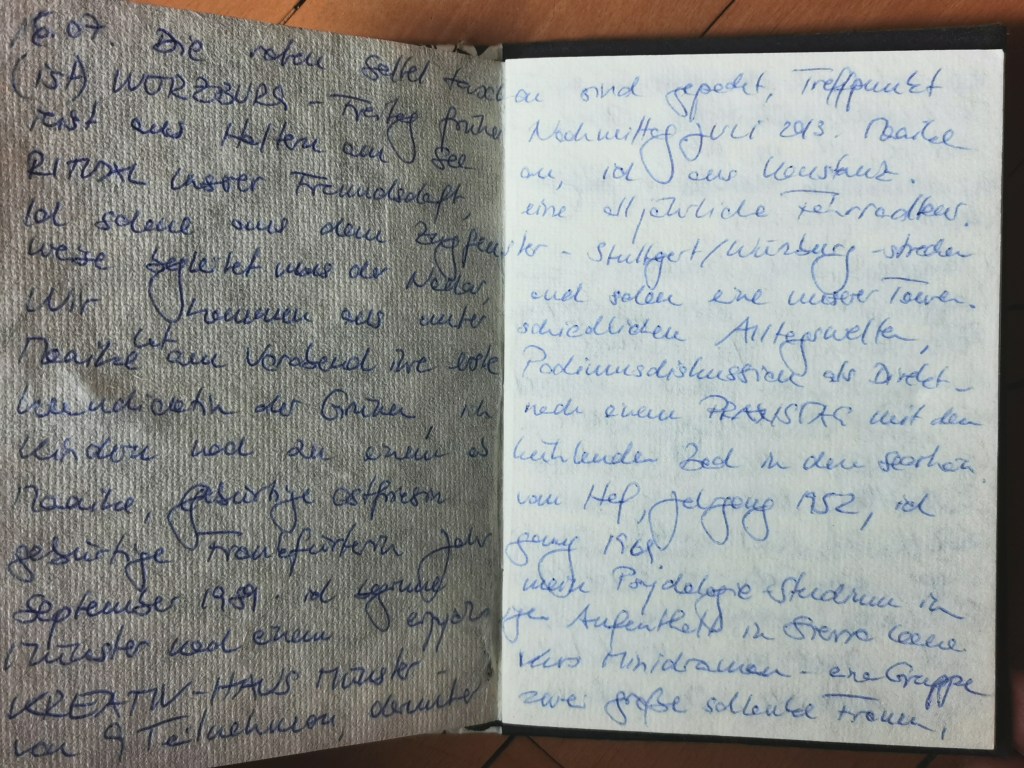 16.07. Die roten Sattel taschen sind gepackt, Treffpunkt
(ist) WÜRZBURG - Freitag früher Nachmittag JULI 2013. Maaike
reist aus Haltern am See an, ich aus Konstanz.
RITUAL unserer Freundschaft, eine alljährliche Fahrradtour.
Ich schaue aus dem Zugfenster - Stuttgart/Würzburg - strecken
weise begleitet uns der Neckar, und schon eine unserer Touren.
Wir kommen aus unter schiedlichen Alltagswelten,
Maaike hat am Vorabend ihre erste Podiumsdiskussion als Direkt-
kandidatin der Grünen, ich nach einem PRAXISTAG mit den
Kindern noch zu einem kühlenden Bad in den
Maaike, gebürtige Ostfriesin vom Hof, Jahrgang 1952, ich
gebürtige Frankfurterin Jahr gang 1961
September 1989. ich begann mein Psychologie Studium in
Münster nach einem Aufenthalt in Sierra Leone
KREATIV-HAUS Münster - Kurs Minidramen - eine Gruppe
von 9 Teilnehmern, darunter zwei große schlanke Frauen,